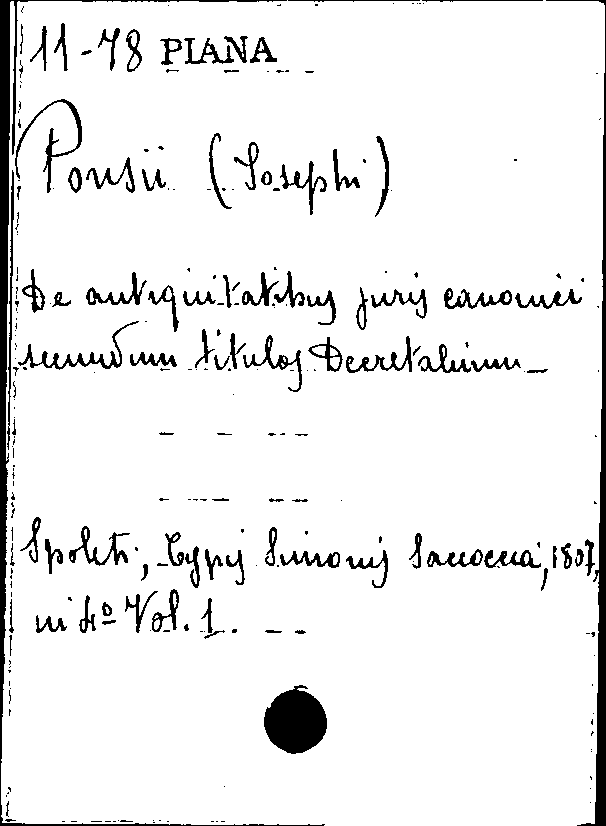 11-78 PIANA
Ponsii (Iosephi)
De antiquitatibus juris canonici
secundum titulos Decretalium
Spoleti, Typis Simonis Saccoccia, 1807,
in 4º Vol. 1.